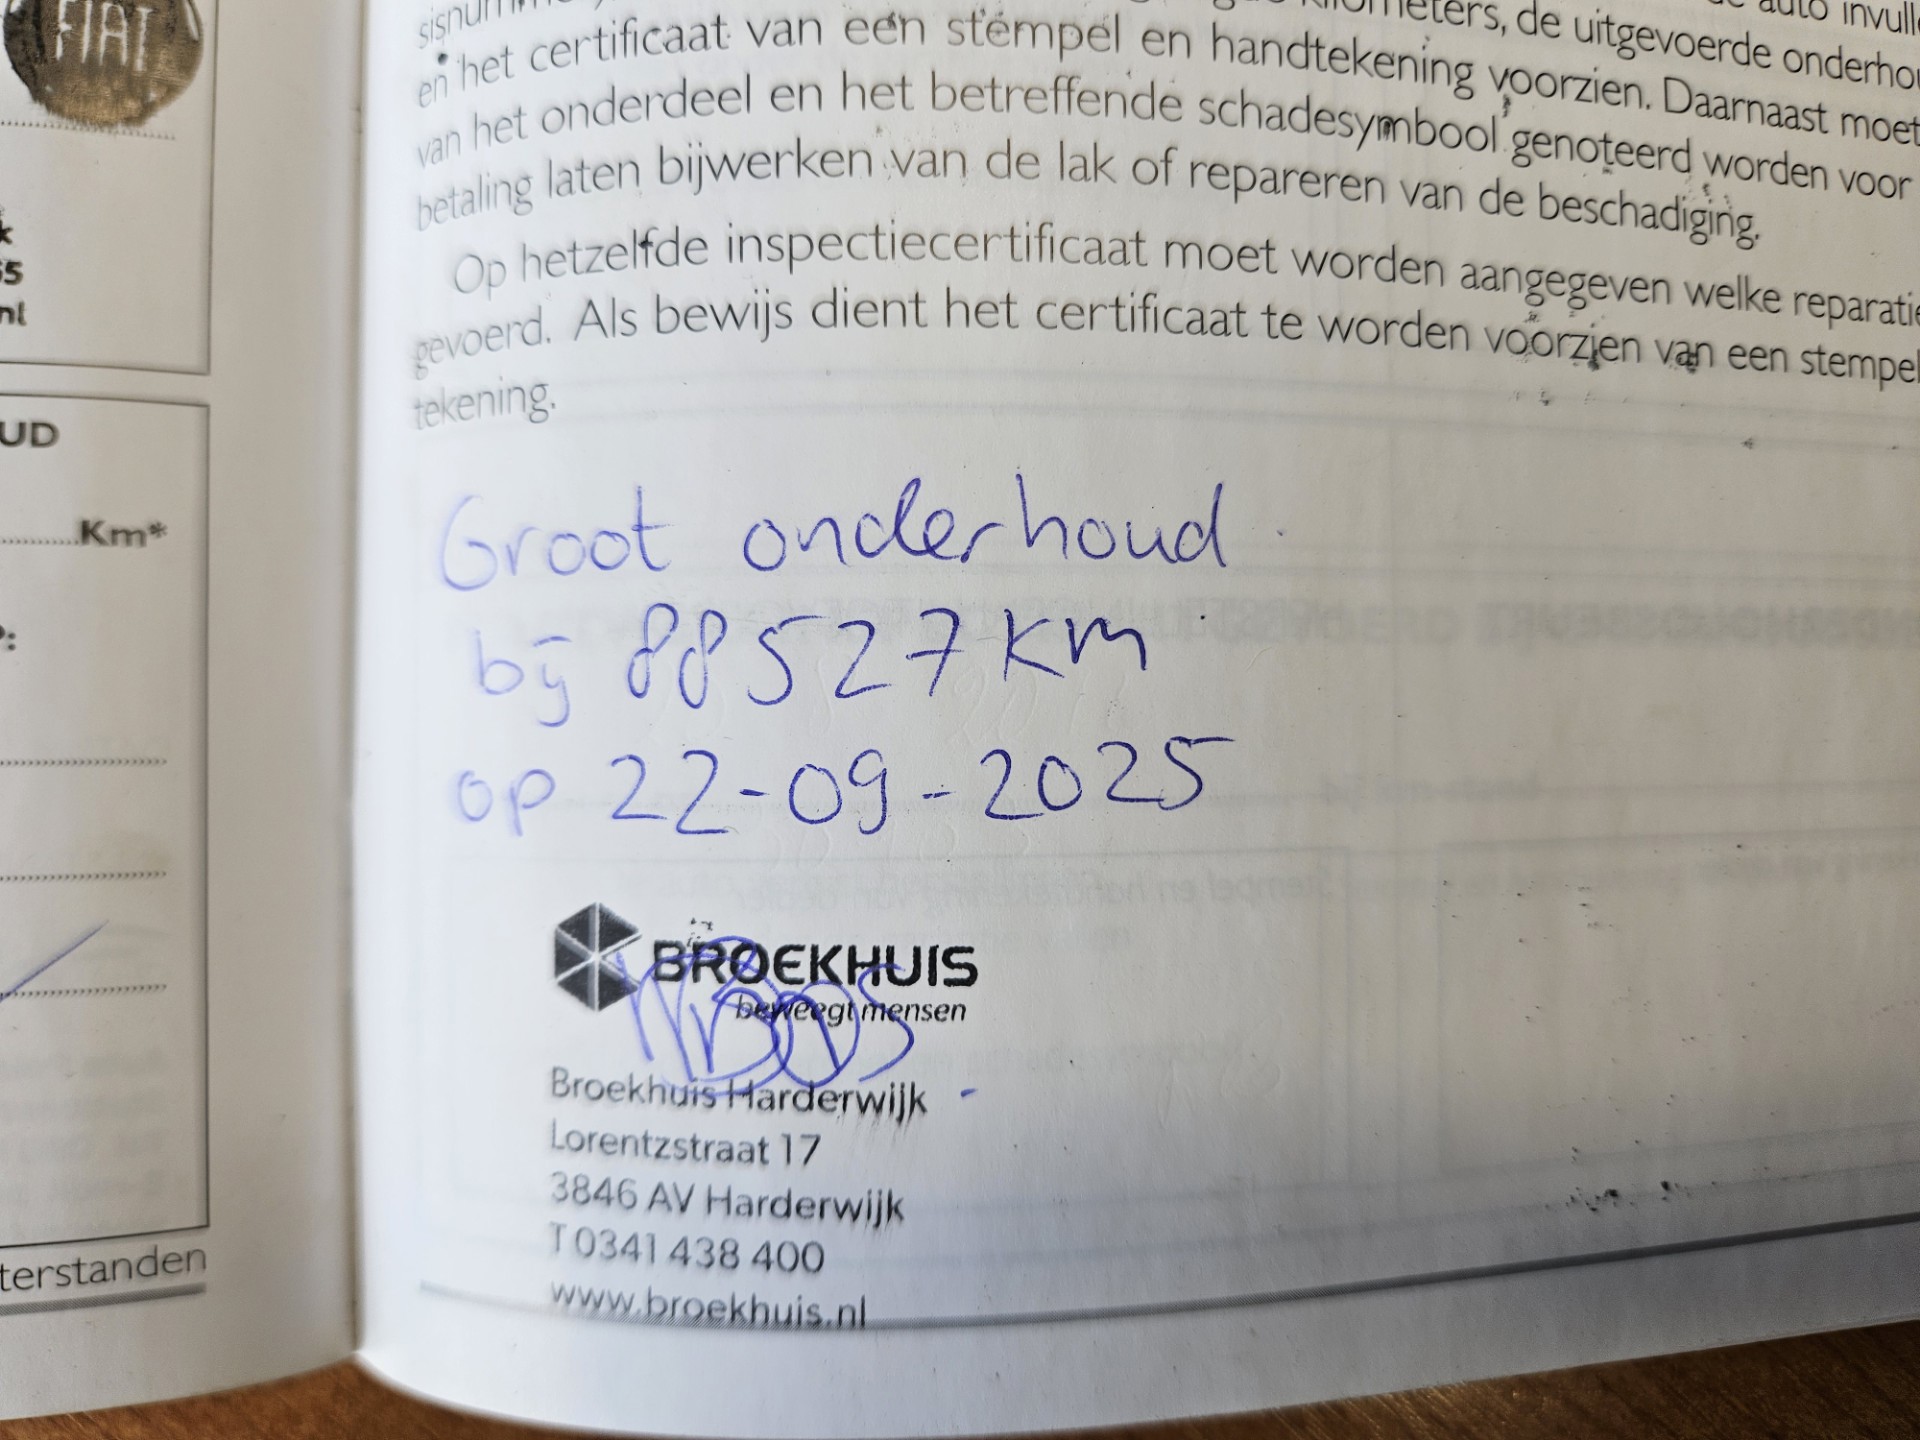 FIAT
5
nl
UD
Km*
terstanden
kilometers, de uitgevoerde
en het certificaat van een stempel en handtekening voorzien. Daarnaast moet
van het onderdeel en het betreffende schadesymbool genoteerd worden voor
betaling laten bijwerken van de lak of repareren van de beschadiging.
Op hetzelfde inspectiecertificaat moet worden aangegeven welke
gevoerd. Als bewijs dient het certificaat te worden voorzien van een stempel
tekening.
Groot onderhoud
bij 88527 km
op 22-09-2025
BROEKHUIS
beweegt mensen
Broekhuis Harderwijk
Lorentzstraat 17
3846 AV Harderwijk
T 0341 438 400
www.broekhuis.nl